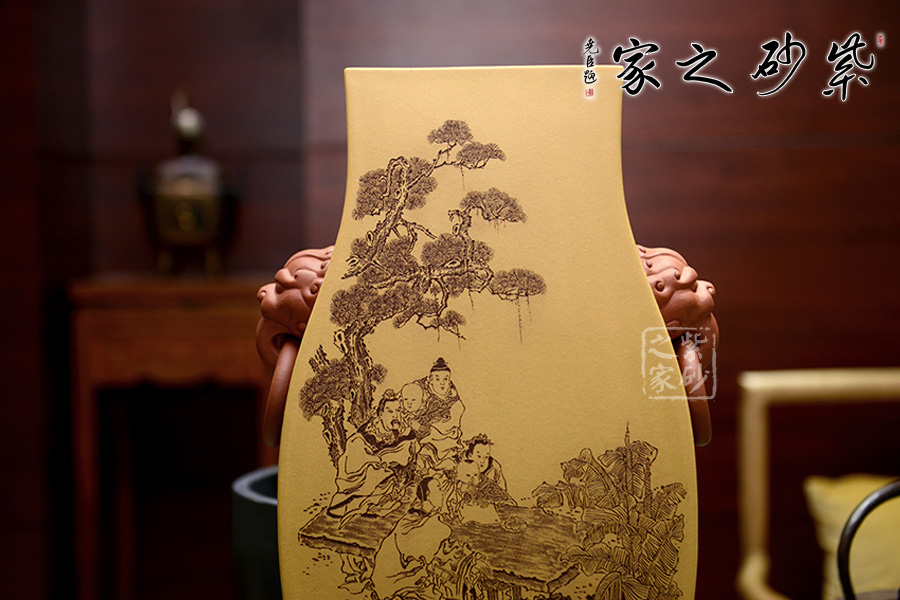 紫砂之家
尧臣题
紫砂之家